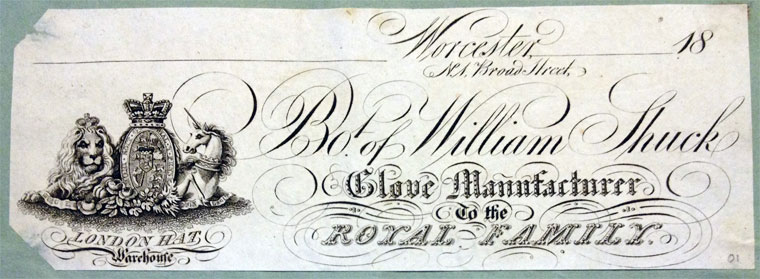 Worcester, 18
No. 1, Broad Street,
Bot. of William Shuck
Glove Manufacturer
To the
ROYAL FAMILY.
LONDON HAT
Warehouse
01